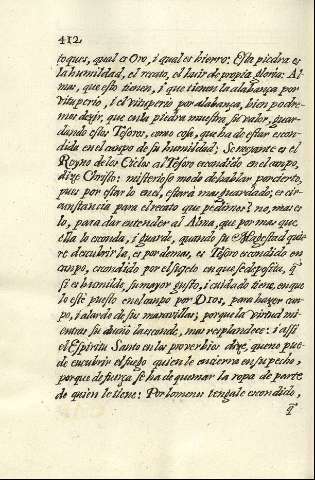 412
toques, qual es Oro, i qual es hierro: Esta piedra es
la humildad, el recato, el huir de propia gloria: Al
mas, que esto tienen, i que tienen la alabança por
vituperio, i el vituperio por alabança, bien podre-
mos dezir, que en la piedra muestra su valor, guar-
dando estos Tesoros, como cosa, que ha de estar escon-
dida en el campo de su humildad; Semejante es el
Reyno de los Cielos al Tesoro escondido en el campo,
dize Christo: misterioso modo de hablar por cierto,
pues por estar lo en el, estará mas guardado; es cir-
cunstancia para el recato que pedimos? no, mas es
lo, para dar entender al Alma, que por mas que
ella lo esconda, i guarde, quando su Magestad quie
re descubrirla, es por demas, es Tesoro escondido en
campo, escondido por el sujeto en que se deposita, q̃
si es humilde, su mayor gusto, i cuidado tiene, en que
lo esté puesto en el campo por Dios, para hazer cam-
po, i alarde de sus maravillas; porque la virtud mi-
entras su dueño la esconde, mas resplandece: i assi
el Espiritu Santo en los proverbios dize, que no pue-
de encubrir el fuego quien le encierra en su pecho,
porque de fuerça se ha de quemar la ropa de parte
de quien le tiene: Por lo menos tengale escondido,
q̃